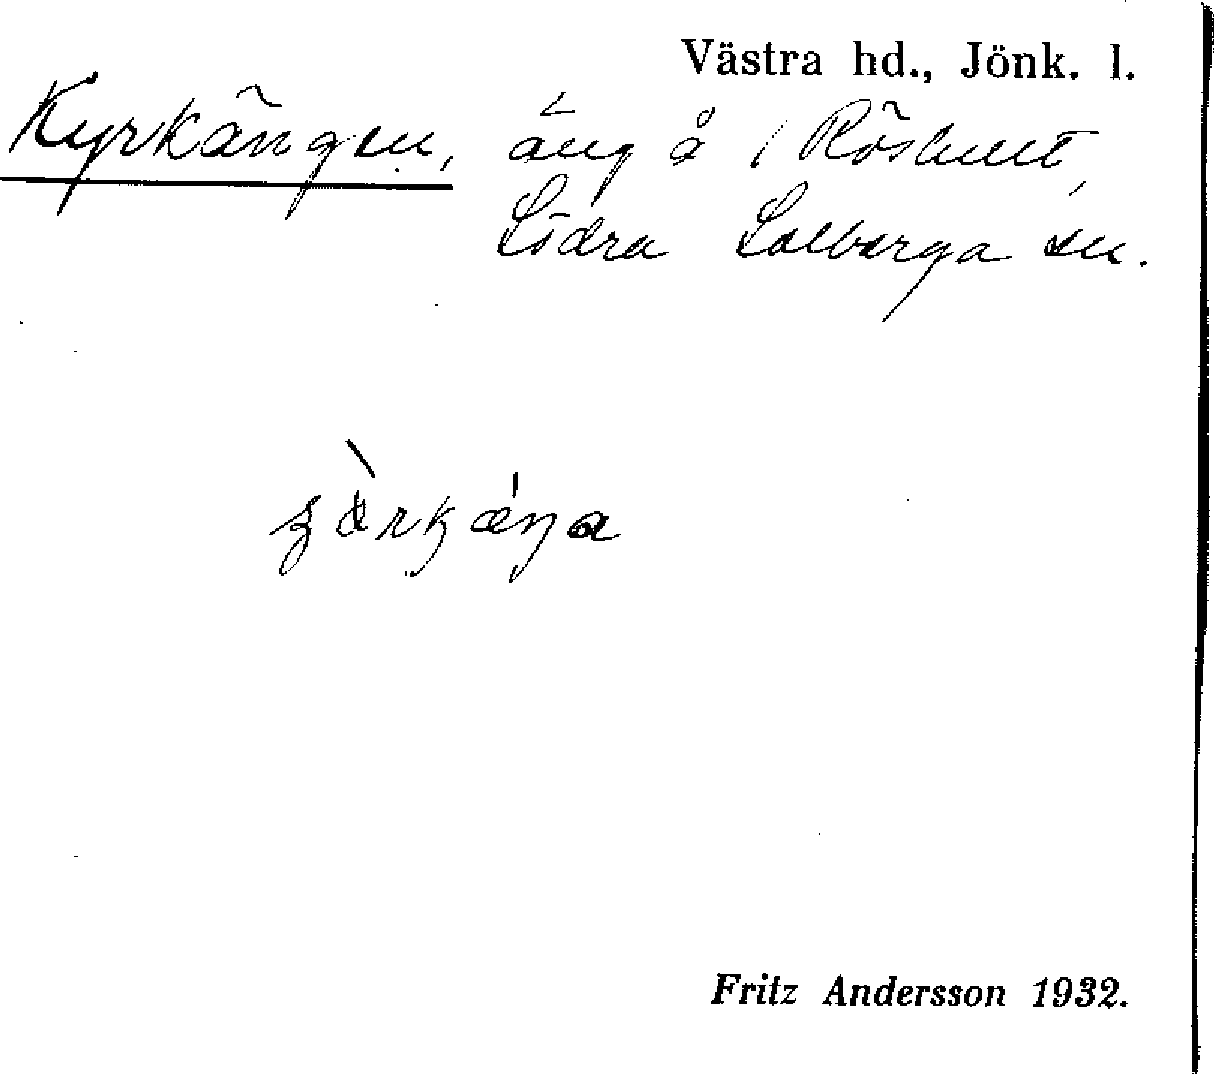 Västra hd., Jönk. l.
Kyrkängen, äng å Röshult,
Södra Solberga sn.
Fritz Andersson 1932.